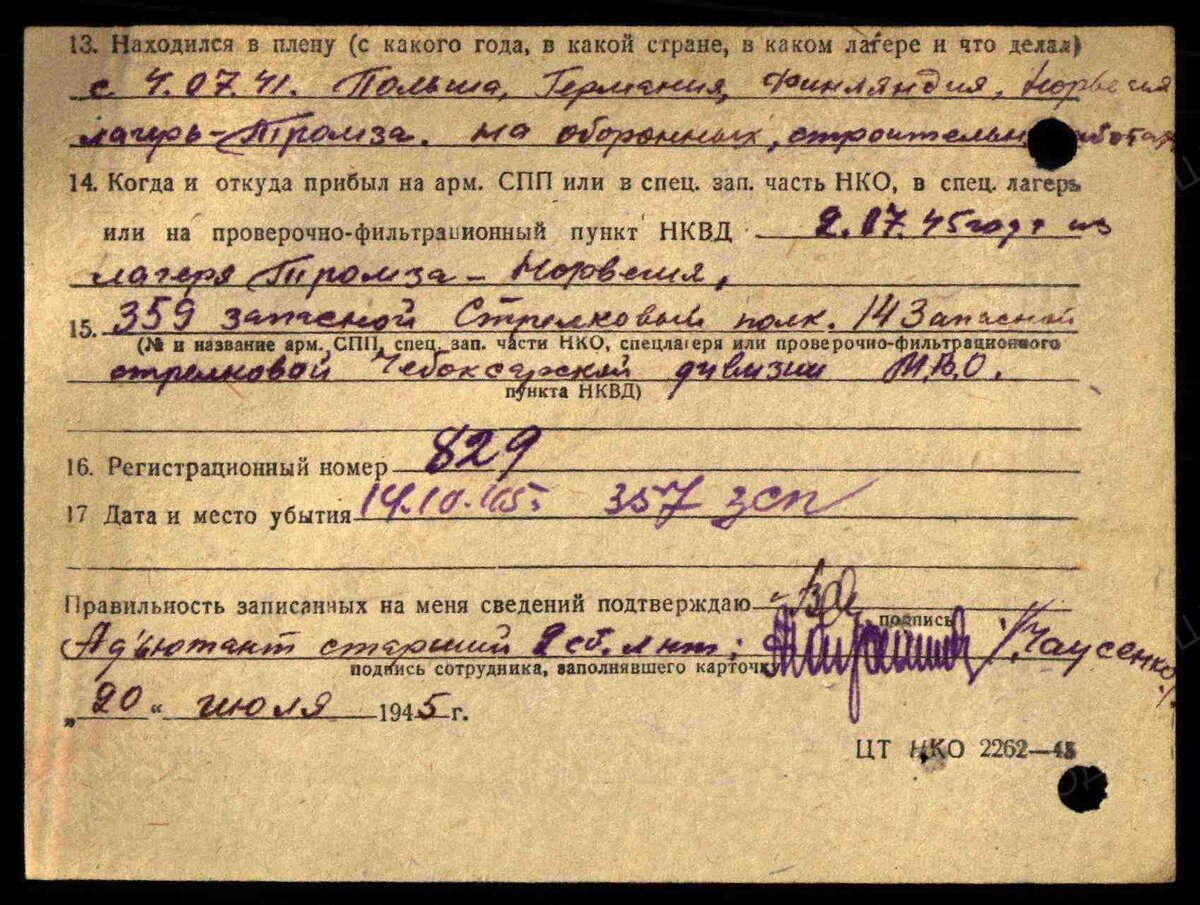 13. Находился в плену (с какого года, в какой стране, в каком лагере и что делал)
с 4.07.41. Польша, Германия, Финляндия, Норвегия
лагерь-Тромза. на оборонных, строительн аботах
14. Когда и откуда прибыл на арм. СПП или в спец. зап. часть НКО, в спец. лагерь
или на проверочно-фильтрационный пункт НКВД 2.07.45 года из
лагеря Тромза - Норвегия,
15. 359 запасной Стрелковый полк. 14 Запасной
(№ и название арм. СПП, спец. зап. части НКО, спецлагеря или проверочно-фильтрационного
стрелковой Чебоксарской дивизии М.В.О.
пункта НКВД)
16. Регистрационный номер 829
17 Дата и место убытия 14.10.45. 357 зсп
Правильность записанных на меня сведений подтверждаю
подпись
Адъютант старший 2 сб. л-нт: /Чаусенко/.
подпись сотрудника, заполнявшего карточку
„20“ июля 1945 г.
ЦТ НКО 2262—45